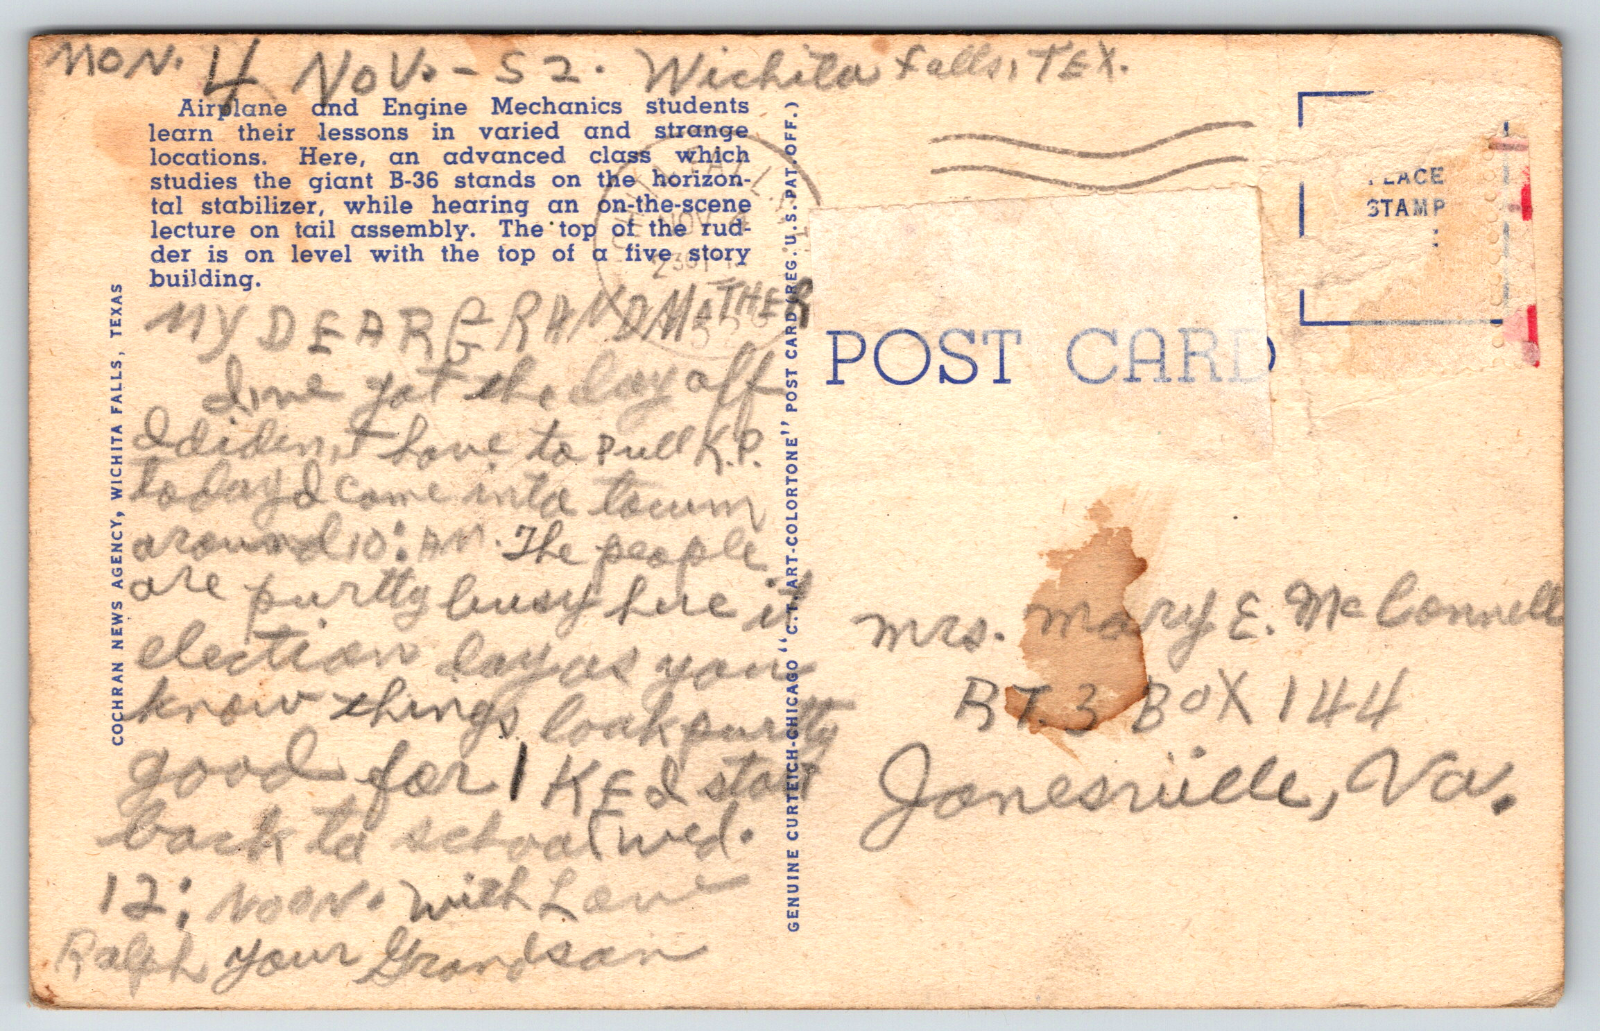 MON. 4 NOV. - 52. Wichita Falls, TEX.
Airplane and Engine Mechanics students
learn their lessons in varied and strange
locations. Here, an advanced class which
studies the giant B-36 stands on the horizon-
tal stabilizer, while hearing an on-the-scene
lecture on tail assembly. The top of the rud-
der is on level with the top of a five story
building.
MY DEAR GRANDMOTHER
I,ve got the day off
I diden,t have to Pull K.P.
today I come into town
around 10: AM. The people
are purtty busy here it
election day as you
know things look purtty
good for IKE I start
back to school wed.
12: NOON. With Love
Ralph your Grandson
COCHRAN NEWS AGENCY, WICHITA FALLS, TEXAS
GENUINE CURTEICH-CHICAGO "C.T. ART-COLORTONE" POST CARD (REG. U.S. PAT. OFF.)
NOV 4
POST CARD
LACE
STAMP
Mrs. Mary E. McConnell
RT. 3 BOX 144
Jonesville, Va.